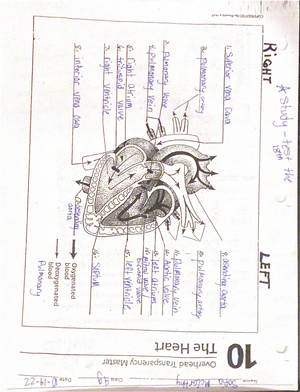 Name
Class
Date 10-19-22
Overhead Transparency Master
10 The Heart
* Study - test the
18th
RIGHT
LEFT
1. Superior Vena Cava
2. Pulmonary artery
3. Pulmonary Valve
4. Pulmonary vein
5. Right atrium
6. tricuspid valve
7. right ventricle
8. inferior vena cava
pulmonary artery
11. Pulmonary vein
12. Aortic valve
13. left atrium
14. mitral valve
bicuspid valve
15. left ventricle
16. Septum
Oxygenated
blood
Deoxygenated
blood
Pulmonary